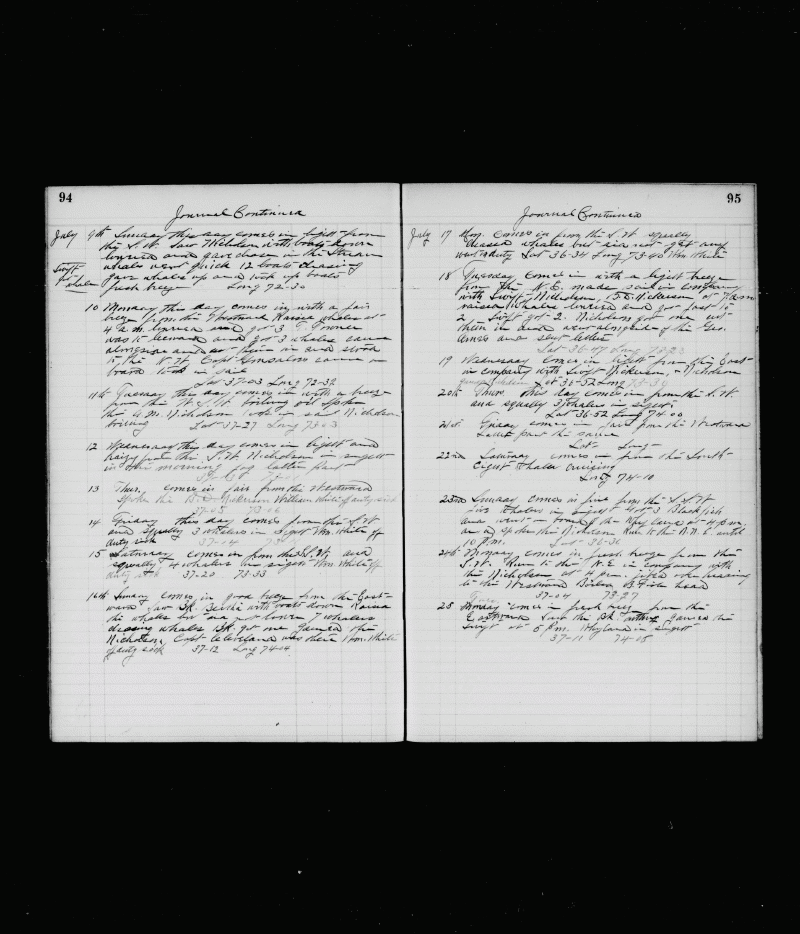 94
Journal Continued
July 9th Sunday this day comes in light from
the S.W. Saw Nicholson with boats down
lowered and gave chase in the Stream
Swift whales went quick 12 boats chasing
1 whale gave whales up and took up boats
fresh breeze Long 72-30
10 Monday this day comes in with a fair
breeze from the Westward Raised whales at
4 a.m. lowered and got 3
was to leeward and got 3 whales came
alongside and cut them in and stood
to the N.W. Capt Gonsalves came on
board took in sail
Lat 37-03 Long 72-32
11th Tuesday this day comes in with a breeze
from the W.S.W. boiling oil Spoke
the A.M. Nicholson took in sail Nicholson
boiling Lat 37-27 Long 73-03
12 Wednesday this day comes in light and
hazy from the S.W. Nicholson in sight
in the morning fog latter part
13 Thur. comes in fair from the Westward
Spoke the B.D. Nickerson William White off duty sick
37-45 73-06
14 Friday this day comes from the S.W.
and squally 3 whalers in sight Wm. White off
duty sick 37-14
15 Saturday comes in from the S.W. and
squally 4 whalers in sight Wm White off
duty sick 37-20 73-33
16th Sunday comes in good breeze from the East-
ward saw Bk. Bertha with boats down Raised
the whales but did not lower 7 whalers
chasing whales Bk. got one Gamed the
Nicholson, Capt Cleveland was there Wm. White
off duty sick 37-12 Long 74-04
95
Journal Continued
July 17 Mon. Comes in from the S.W. squally
chased whales but did not get any
Lat 36-34 Long 73-40 Wm White
18 Tuesday Comes in with a light breeze
from the N.E. made sail in company
with Swift - Nicholson, B.D. Nickerson at 7 a.m.
raised whales lowered and got fast to
2. Swift got 2. Nicholson got one cut
them in and went alongside of the Geo.
and sent letter
Lat 36-47 Long
19 Wednesday Comes in light from the East
in company with Swift Nickerson, & Nicholson
Lat 36-52 Long 73-39
20th Thur. this day comes in from the S.W.
and squally 3 whalers in sight.
Lat 36-52 Long 74-00
21st Friday comes in fair from the Westward
Latter part the same
Lat- Long-
22nd Saturday comes in from the South-
Eight whaler cruising
Long 74-10
23rd Sunday comes in fine from the S.S.W.
five whalers in sight got 3 Blackfish
and went on board of the Wayland at 4 p.m.
and spoke the Nicholson Run to the N.N.E. until
10 p.m. Lat 36-36
24th Monday comes in fresh breeze from the
S.W. Run to the N.E. in company with
the Nicholson at 4 p.m.
to the Westward Boiled B.Fish head
37-04 73-27
Tues.
25 Monday comes in fresh breeze from the
Eastward Saw the Bk. Gamed the
Swift at 5 p.m. Wayland in sight
37-11 74-08